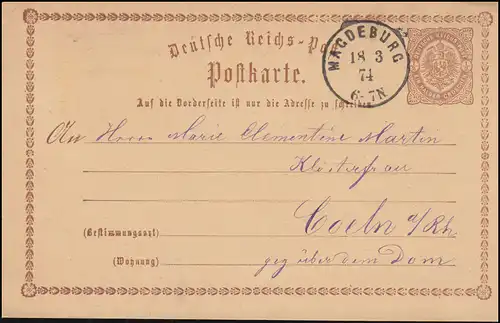 Deutsche Reichs-Post
MAGDEBURG
18 3
74
6-7N
Postkarte.
Auf die Vorderseite ist nur die Adresse zu schreiben
An Herrn Marie Clementine Martin
Klosterfrau
Coeln a/Rh.
(Bestimmungsort)
(Wohnung)
geg über dem Dom